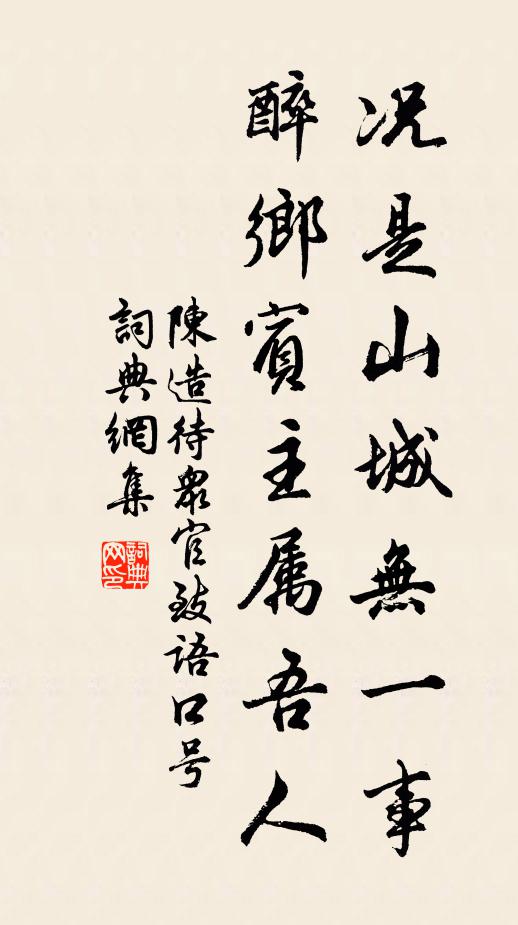 况是山城無一事
醉鄉賓主属吾人
陳造待衆官致語口号
詞典網集
詞典网印